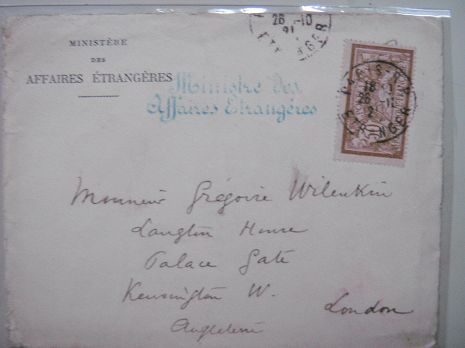 MINISTÈRE
DES
AFFAIRES ÉTRANGÈRES
Ministre des
Affaires Etrangères
26 -10
21
ETRANGER
Monsieur Grégoire Wilenkin
Langton House
Palace Gate
Kensington W.
London
Angleterre